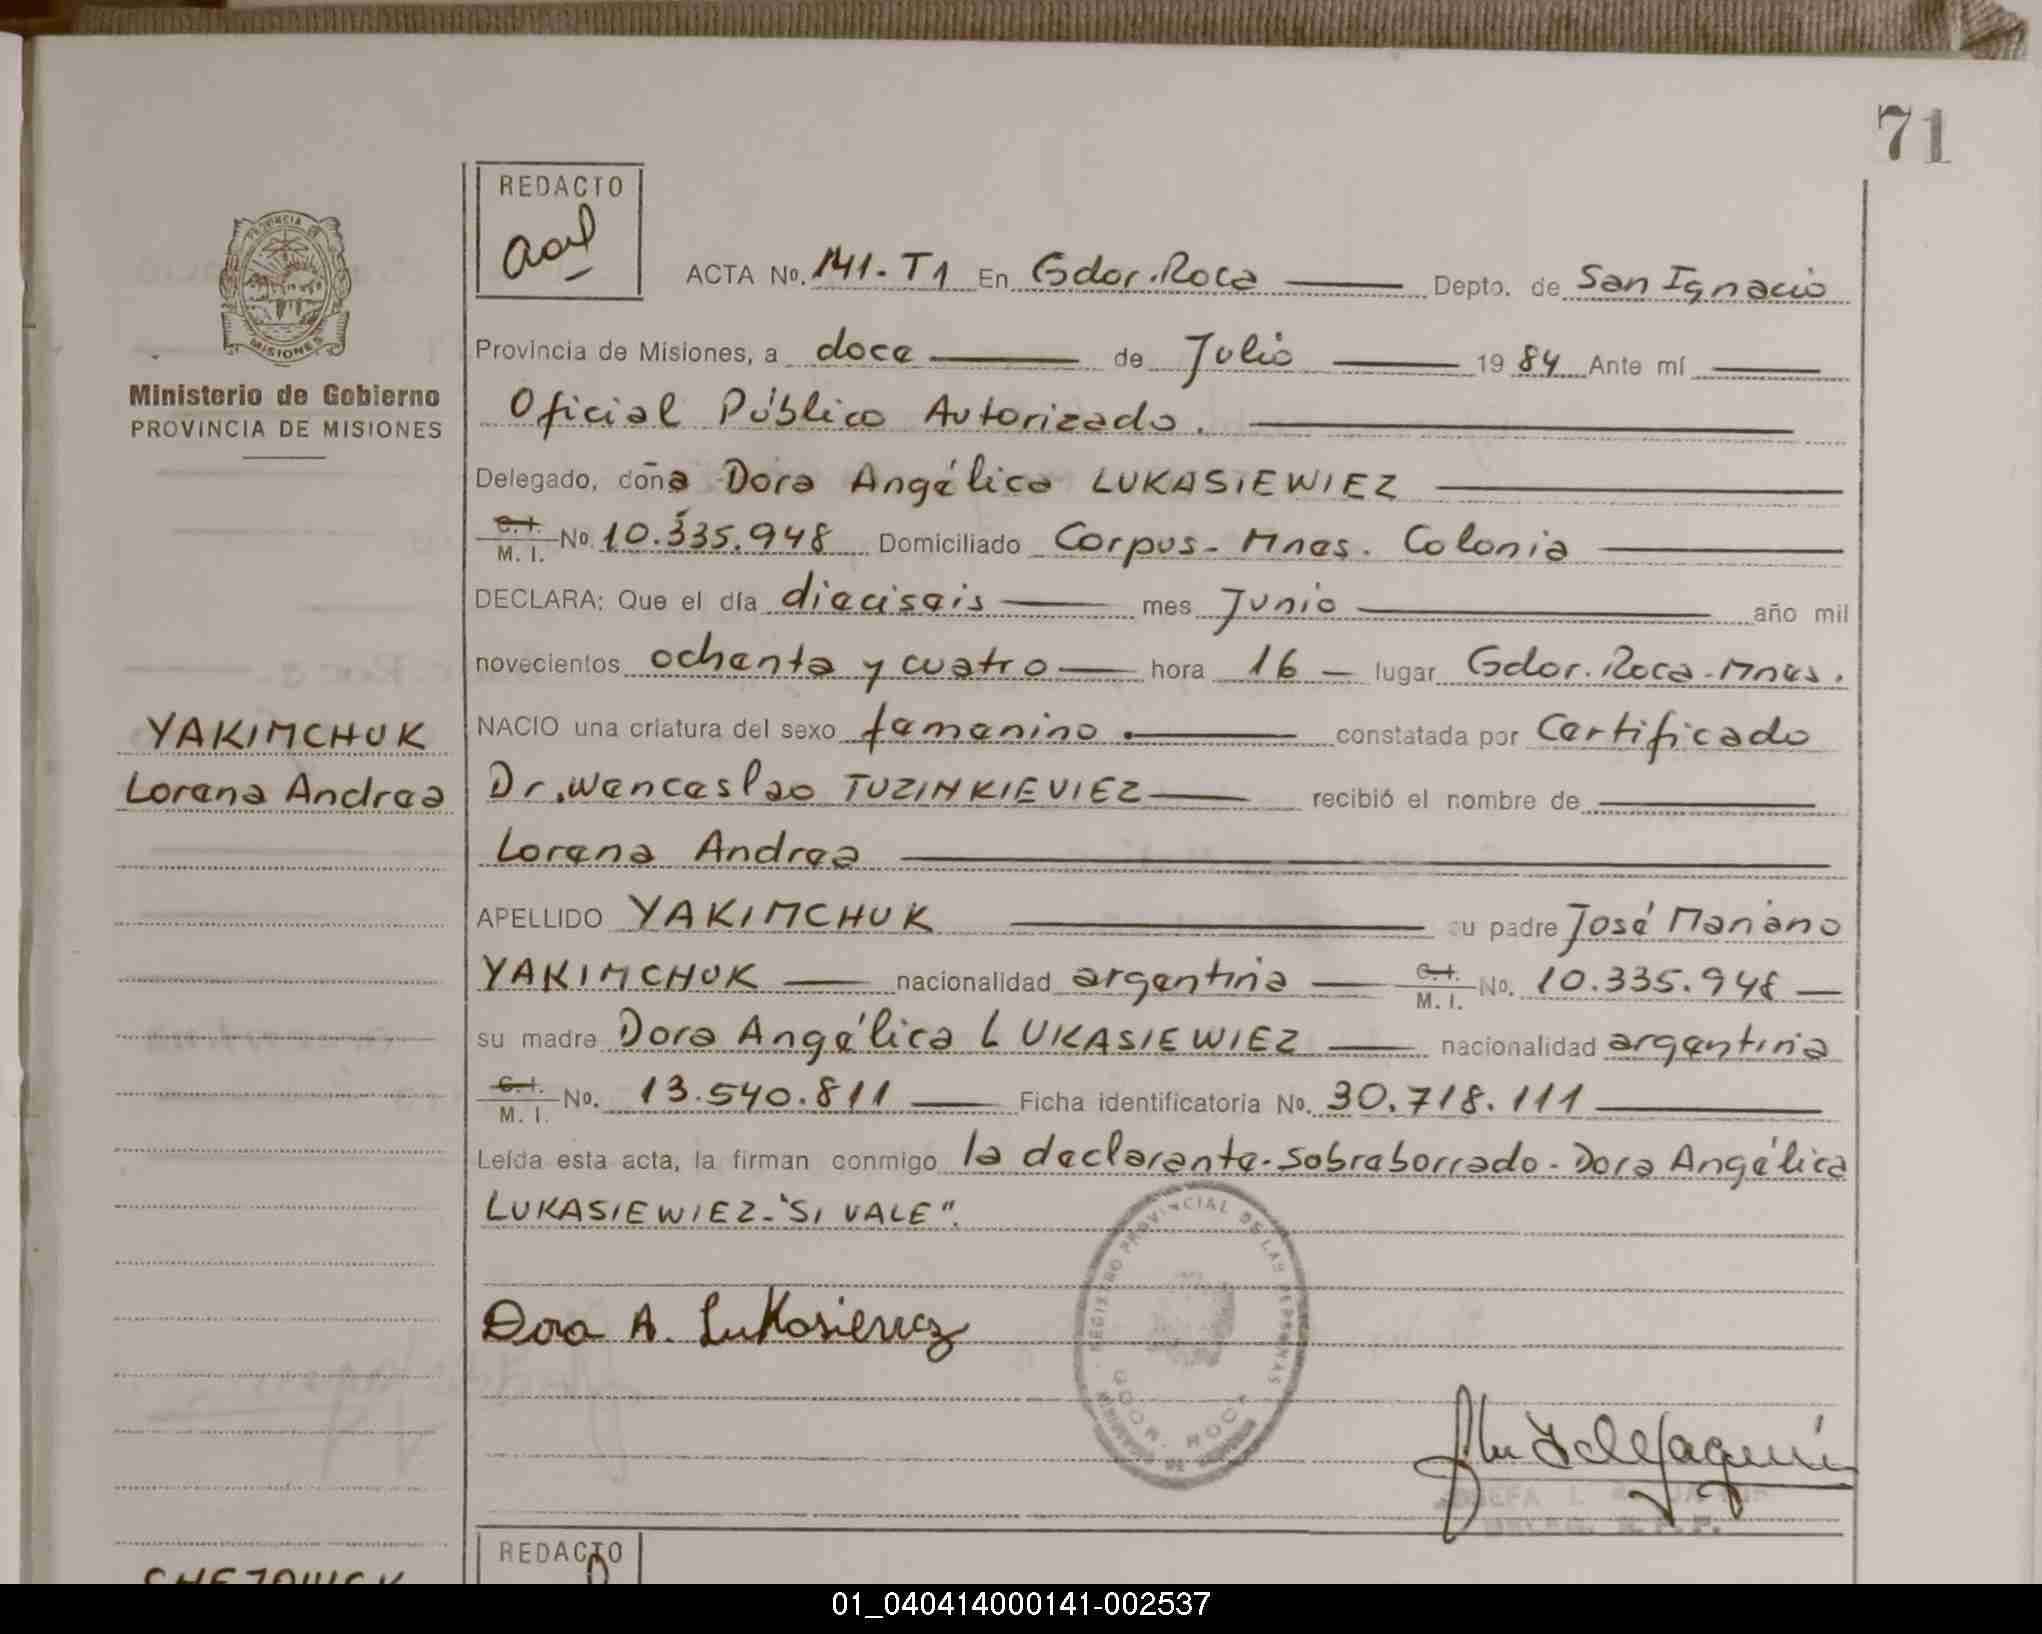 71
REDACTO
ACTA No. 141-T1 En Gdor. Roca Depto. de San Ignacio
PROVINCIA DE
MISIONES
Ministerio de Gobierno
PROVINCIA DE MISIONES
Provincia de Misiones, a doce de Julio 1984 Ante mí
Oficial Público Autorizado.
Delegado, doña Dora Angélica LUKASIEWIEZ
C. I. M. I. No. 10.335.948 Domiciliado Corpus - Mnes. Colonia
DECLARA: Que el día dieciseis mes Junio año mil
novecientos ochenta y cuatro hora 16 lugar Gdor. Roca - Mnes.
NACIO una criatura del sexo femenino. constatada por Certificado
YAKIMCHUK
Lorena Andrea
Dr. Wenceslao TUZINKIEVIEZ recibió el nombre de
Lorena Andrea
APELLIDO YAKIMCHUK su padre José Mariano
YAKIMCHUK nacionalidad argentina C. I. M. I. No. 10.335.948
su madre Dora Angélica LUKASIEWIEZ nacionalidad argentina
C. I. M. I. No. 13.540.811 Ficha identificatoria No. 30.718.111
Leída esta acta, la firman conmigo la declarante - Sobreborrado - Dora Angélica
LUKASIEWIEZ - "SI VALE".
REGISTRO PROVINCIAL DE LAS PERSONAS
GDOR. ROCA
Dora A. Lukasiewiez
REDACTO
01_040414000141-002537